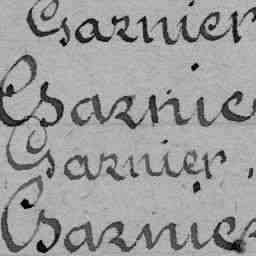 Garnier
Garnier
Garnier.
Garnier